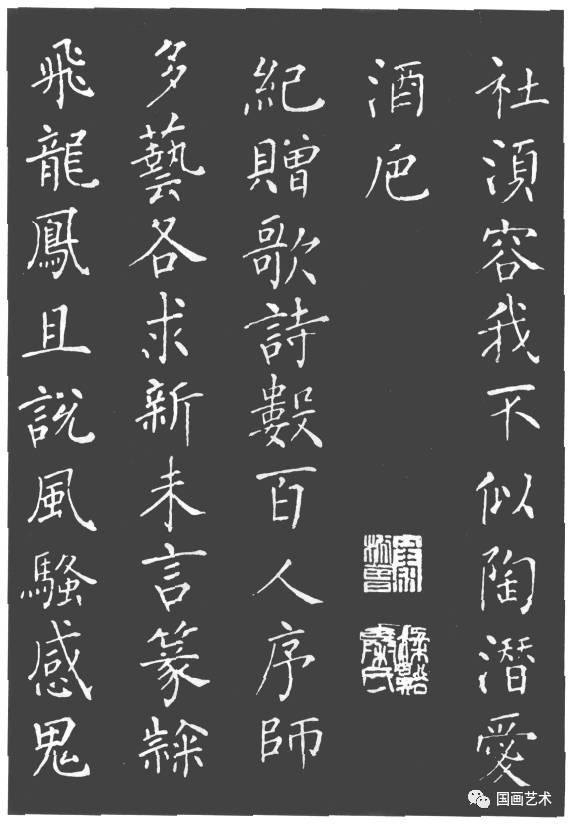 社須容我不似陶潛愛
酒巵
紀贈歌詩數百人序師
多藝各求新未言篆隸
飛龍鳳且說風騷感鬼
国画艺术